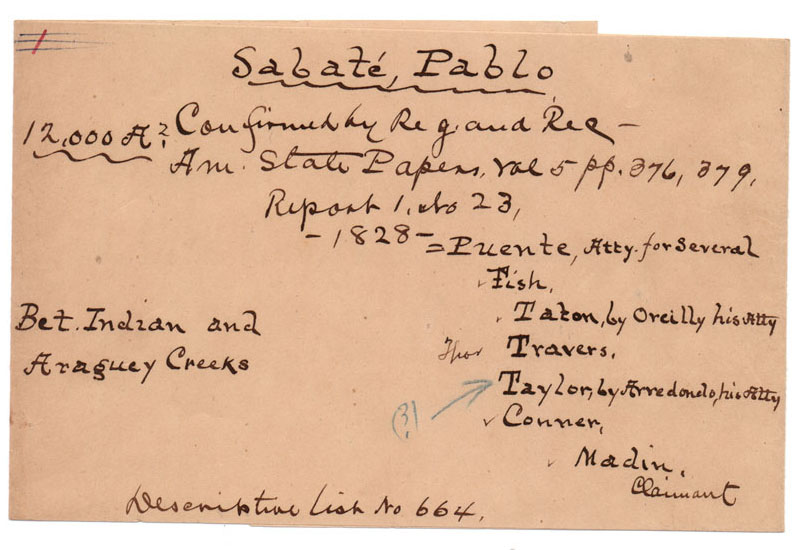 Sabaté, Pablo
12,000 As. Confirmed by Reg. and Rec –
Am. State Papers, Vol 5 pp. 376, 379,
Report 1, No 23,
– 1828 –
= Puente, Atty. for Several
Fish,
Taton, by Oreilly his Atty
Thos Travers,
(?) Taylor, by Arredondo, his Atty
Conner,
Madin,
Claimant
Bet. Indian and
Araguey Creeks
Descriptive List No 664.